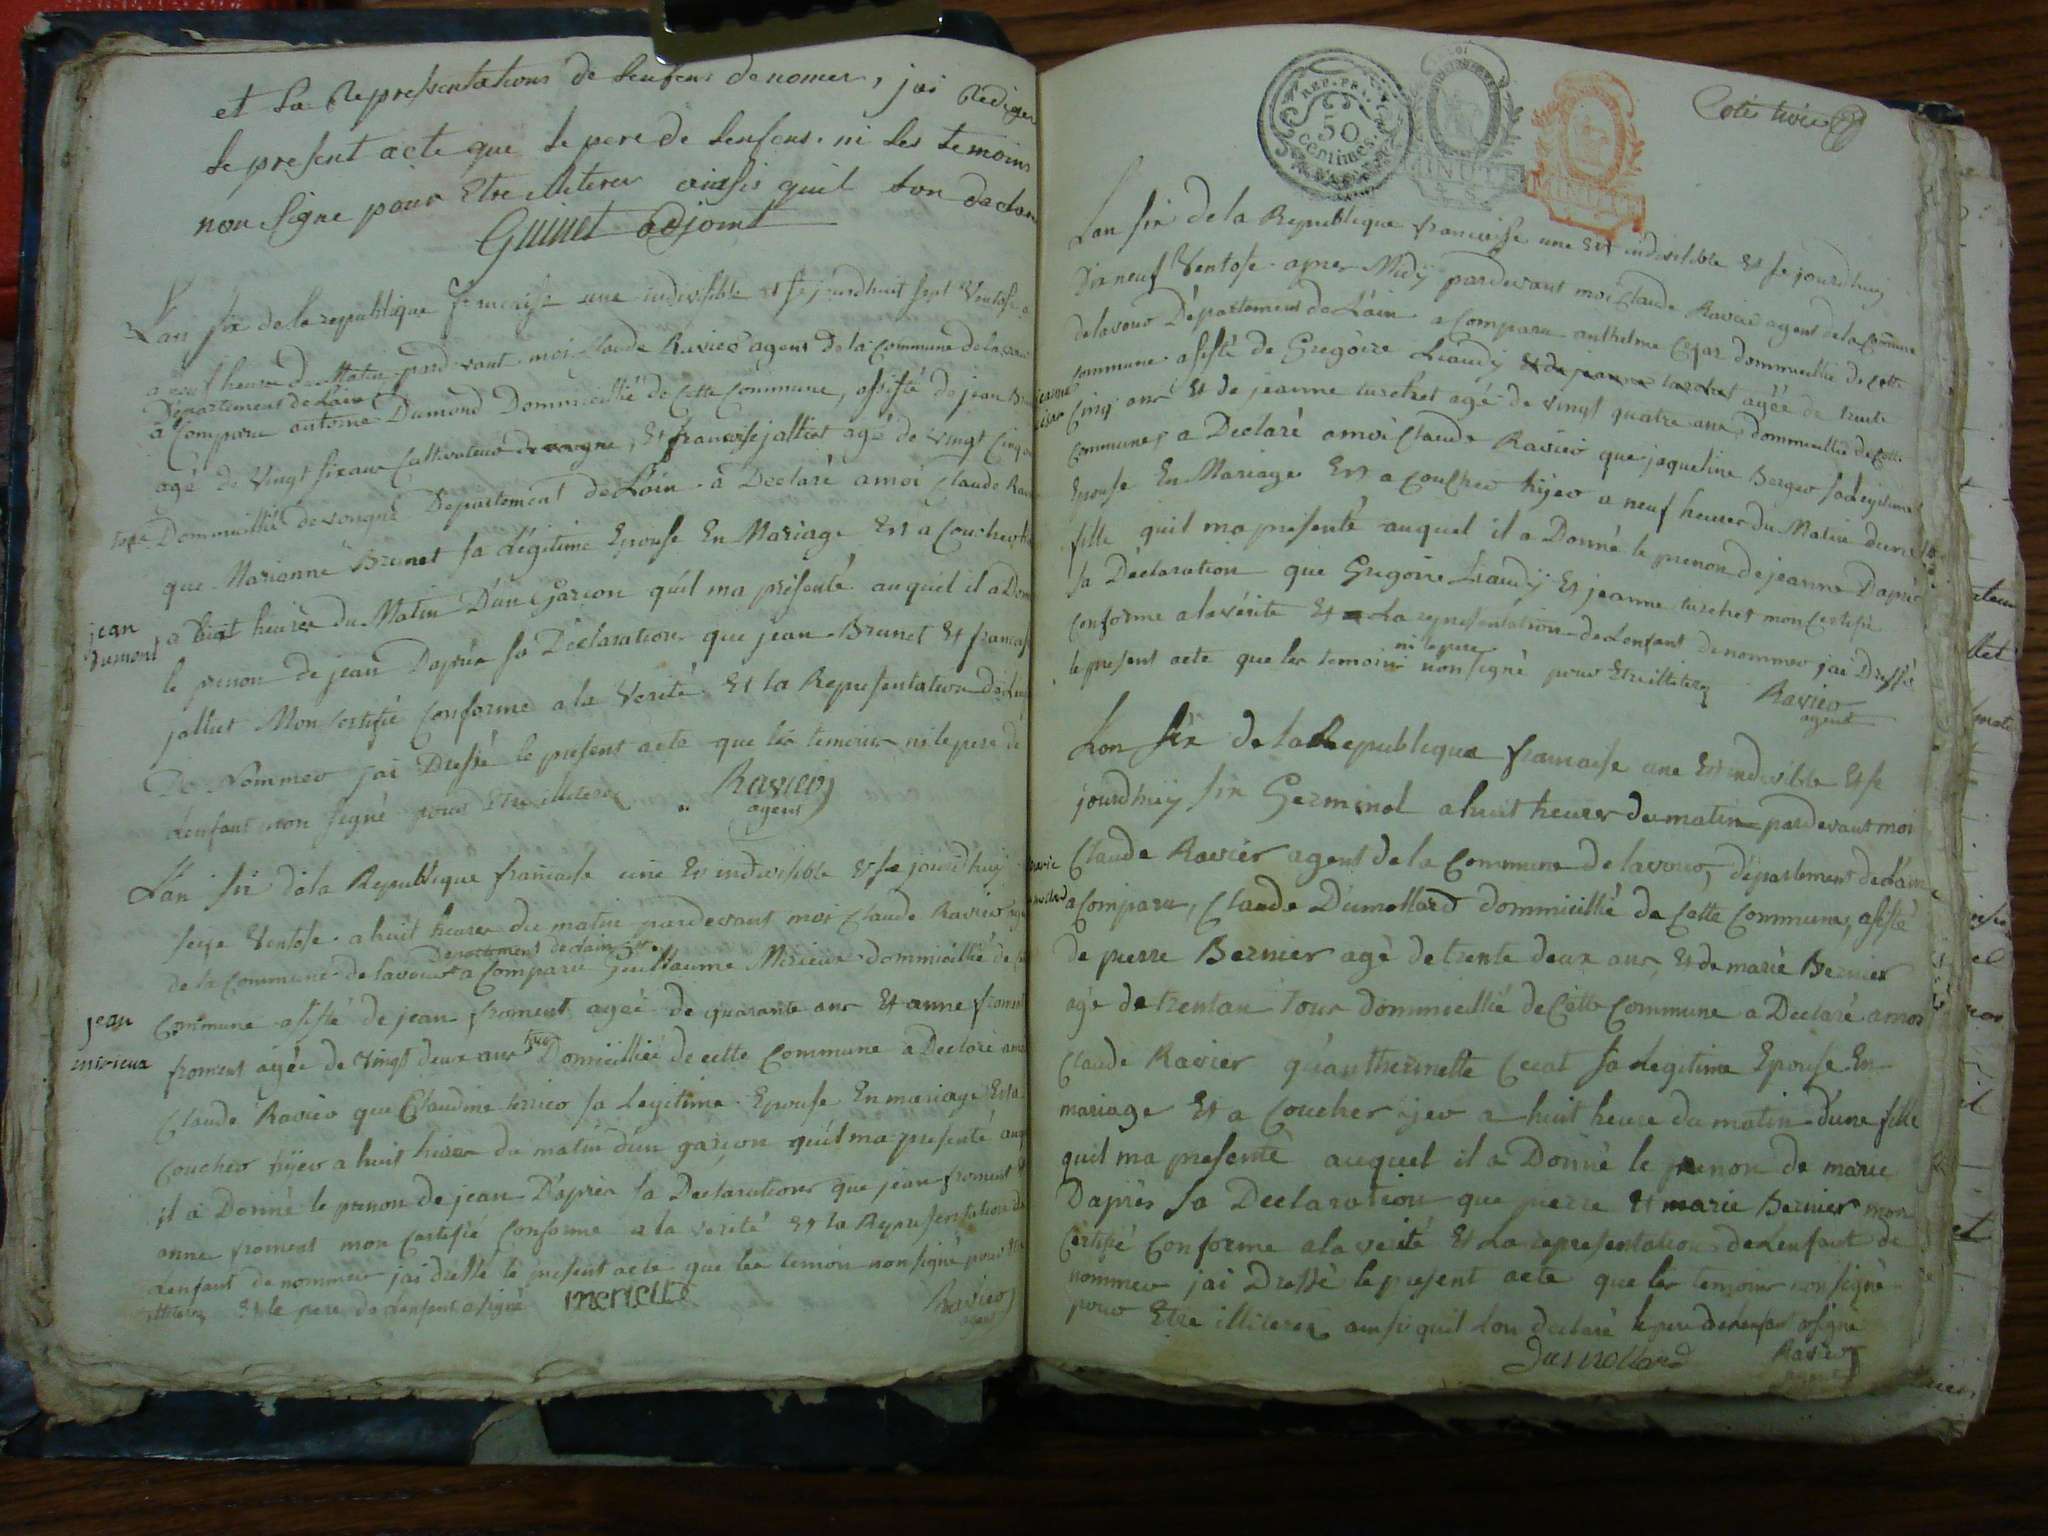 et la representations de lenfens denomer, jai rediger
le present acte que le pere de lenfens ni les temoins
non signe pour etre illiterer ainsis quil lon declar
Guinet adjoint
L'an six de la republique francaise une indivisible et se jourdhuit sept Ventose
a neuf heures du Matin pardevant moi Claude Ravier agent de la Commune de lavou
Departement de Lain
à Comparu antoine Dumond Dommicillié de Cette Commune, assisté de jean
agé de Vingt six ans Cultivateur de vongne, Et francoise jalliet agé de Vingt Cinq
Dommicillié de vongne Departement de Lain à Déclaré a moi Claude
que Marianne Brunet sa Légitime Epouse En Mariage Est à Coucher
jean
dumont
a huit heures du Matin D'un Garcon quil ma présenté auquel il a
le prenon de jean Daprès sa Déclaration que jean Brunet Et
jalliet Mon Certifié Conforme a la Verité Et la Representation
De Nommer jai Dressé le present acte que les temoins ni le pere de
Lenfant non signé pour Etre illiterer Ravier
agent
L'an six de la Republique francaise une Et indivisible Et se jourd'huy
seize Ventose a huit heures du matin pardevant moi Claude Ravier
Departement de lain
de la Commune de lavour a Comparu Guillaume Mirieur dommicillié de
jean
mirieur
Commune assisté de jean froment agée de quarante ans Et anne
froment agée de Vingt deux ans tous Domicilliée de cette Commune a Declaré
Claude Ravier que Claudine sa Legitime Epouse En mariage Est a
Coucher hyer a huit heures du matin d'un garcon quil ma presenté
il a Donné le prenon de jean D'après sa Declaration que jean froment
anne froment mon Certifié Conforme a la verité Et la Representation
Lenfant de nommer jai dressé le present acte que les temoin non signé pour
illiterer Et le pere de Lenfant a signé mirieur Ravier
agent
REP. FR.
50
centimes
MINUTE
MINUTE
Coté trois
Lan six de la Republique francaise une Et indivisible Et se jourdhuy
Dix neuf Ventose apres Midy pardevant moi Claude Ravier agent de la Commune
de lavour Département de Lain a Comparu anthelme Cesar dommicillié de Cette
commune assisté de Gregoire Liaudy et de jeanne turchet agée de trente
Cinq ans Et de jeanne turchet agé de vingt quatre ans dommicillié de Cette
Commune, a Déclaré a moi Claude Ravier que jaqueline Berger sa legitime
Epouse En Mariage Est a Coucher hyer a neuf heures du Matin dune
fille quil ma présenté auquel il a Donné le prenon de jeanne D'après
sa Déclaration que Gregoire Liaudy Et jeanne turchet mon Certifié
Conforme a la vérité Et La representation de Lenfant denommer jai Dressé
ni le pere
le present acte que les temoins non signé pour Etre illiterer Ravier
agent
Lan six de la Republique francaise une Et indivisible Et se
jourdhuy six Germinal a huit heures du matin pardevant moi
Claude Ravier agent de la Commune de lavour, département de Lain
a Comparu, Claude Dumollard dommicillié de Cette Commune, assisté
de pierre Bernier agé de trente deux ans, Et de marie Bernier
agé de trentan tous dommicillié de Cette Commune a Déclaré a moi
Claude Ravier qu'anthermette Cecat sa Legitime Epouse En
mariage Et a Coucher yer a huit heure du matin d'une fille
quil ma presenté auquel il a Donné le prenon de marie
D'après sa Declaration que pierre Et marie Bernier mon
Certifié Conforme a la verité Et La representation de Lenfant de
nommer jai Dressé le present acte que les temoins non signé
pour Etre illiterer ainsi quil Lon declaré le pere de lenfant a signé
Dumollard Ravier
agent